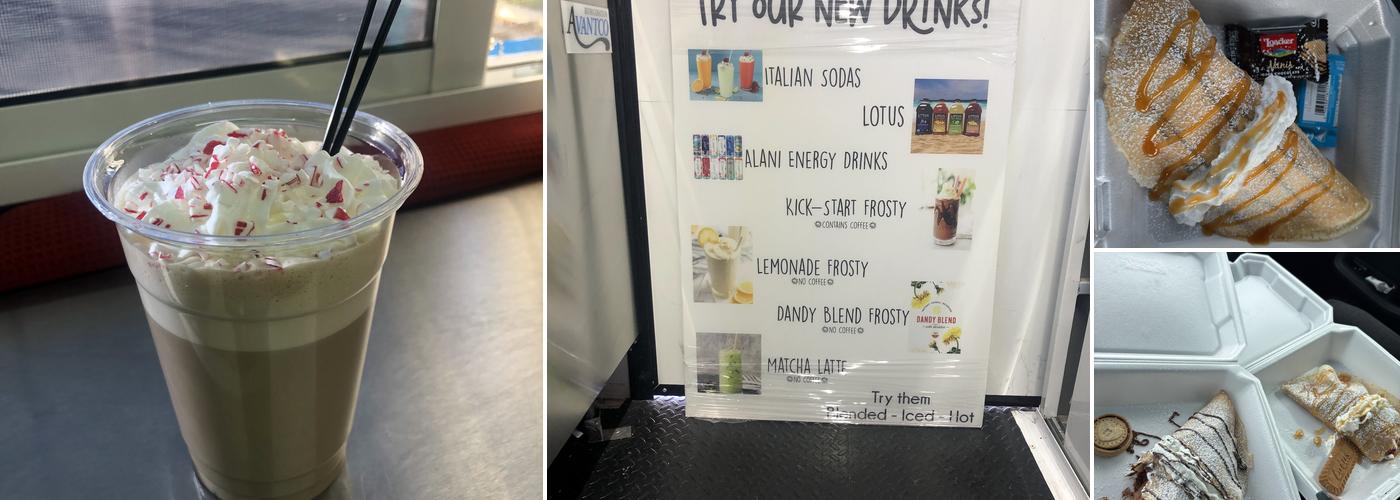 AVANTCO
TRY OUR NEW DRINKS!
ITALIAN SODAS
LOTUS
ALANI ENERGY DRINKS
KICK-START FROSTY
CONTAINS COFFEE
LEMONADE FROSTY
NO COFFEE
DANDY BLEND FROSTY
NO COFFEE
DANDY BLEND
MATCHA LATTE
NO COFFEE
Try them
Blended - Iced - Hot
Loacker